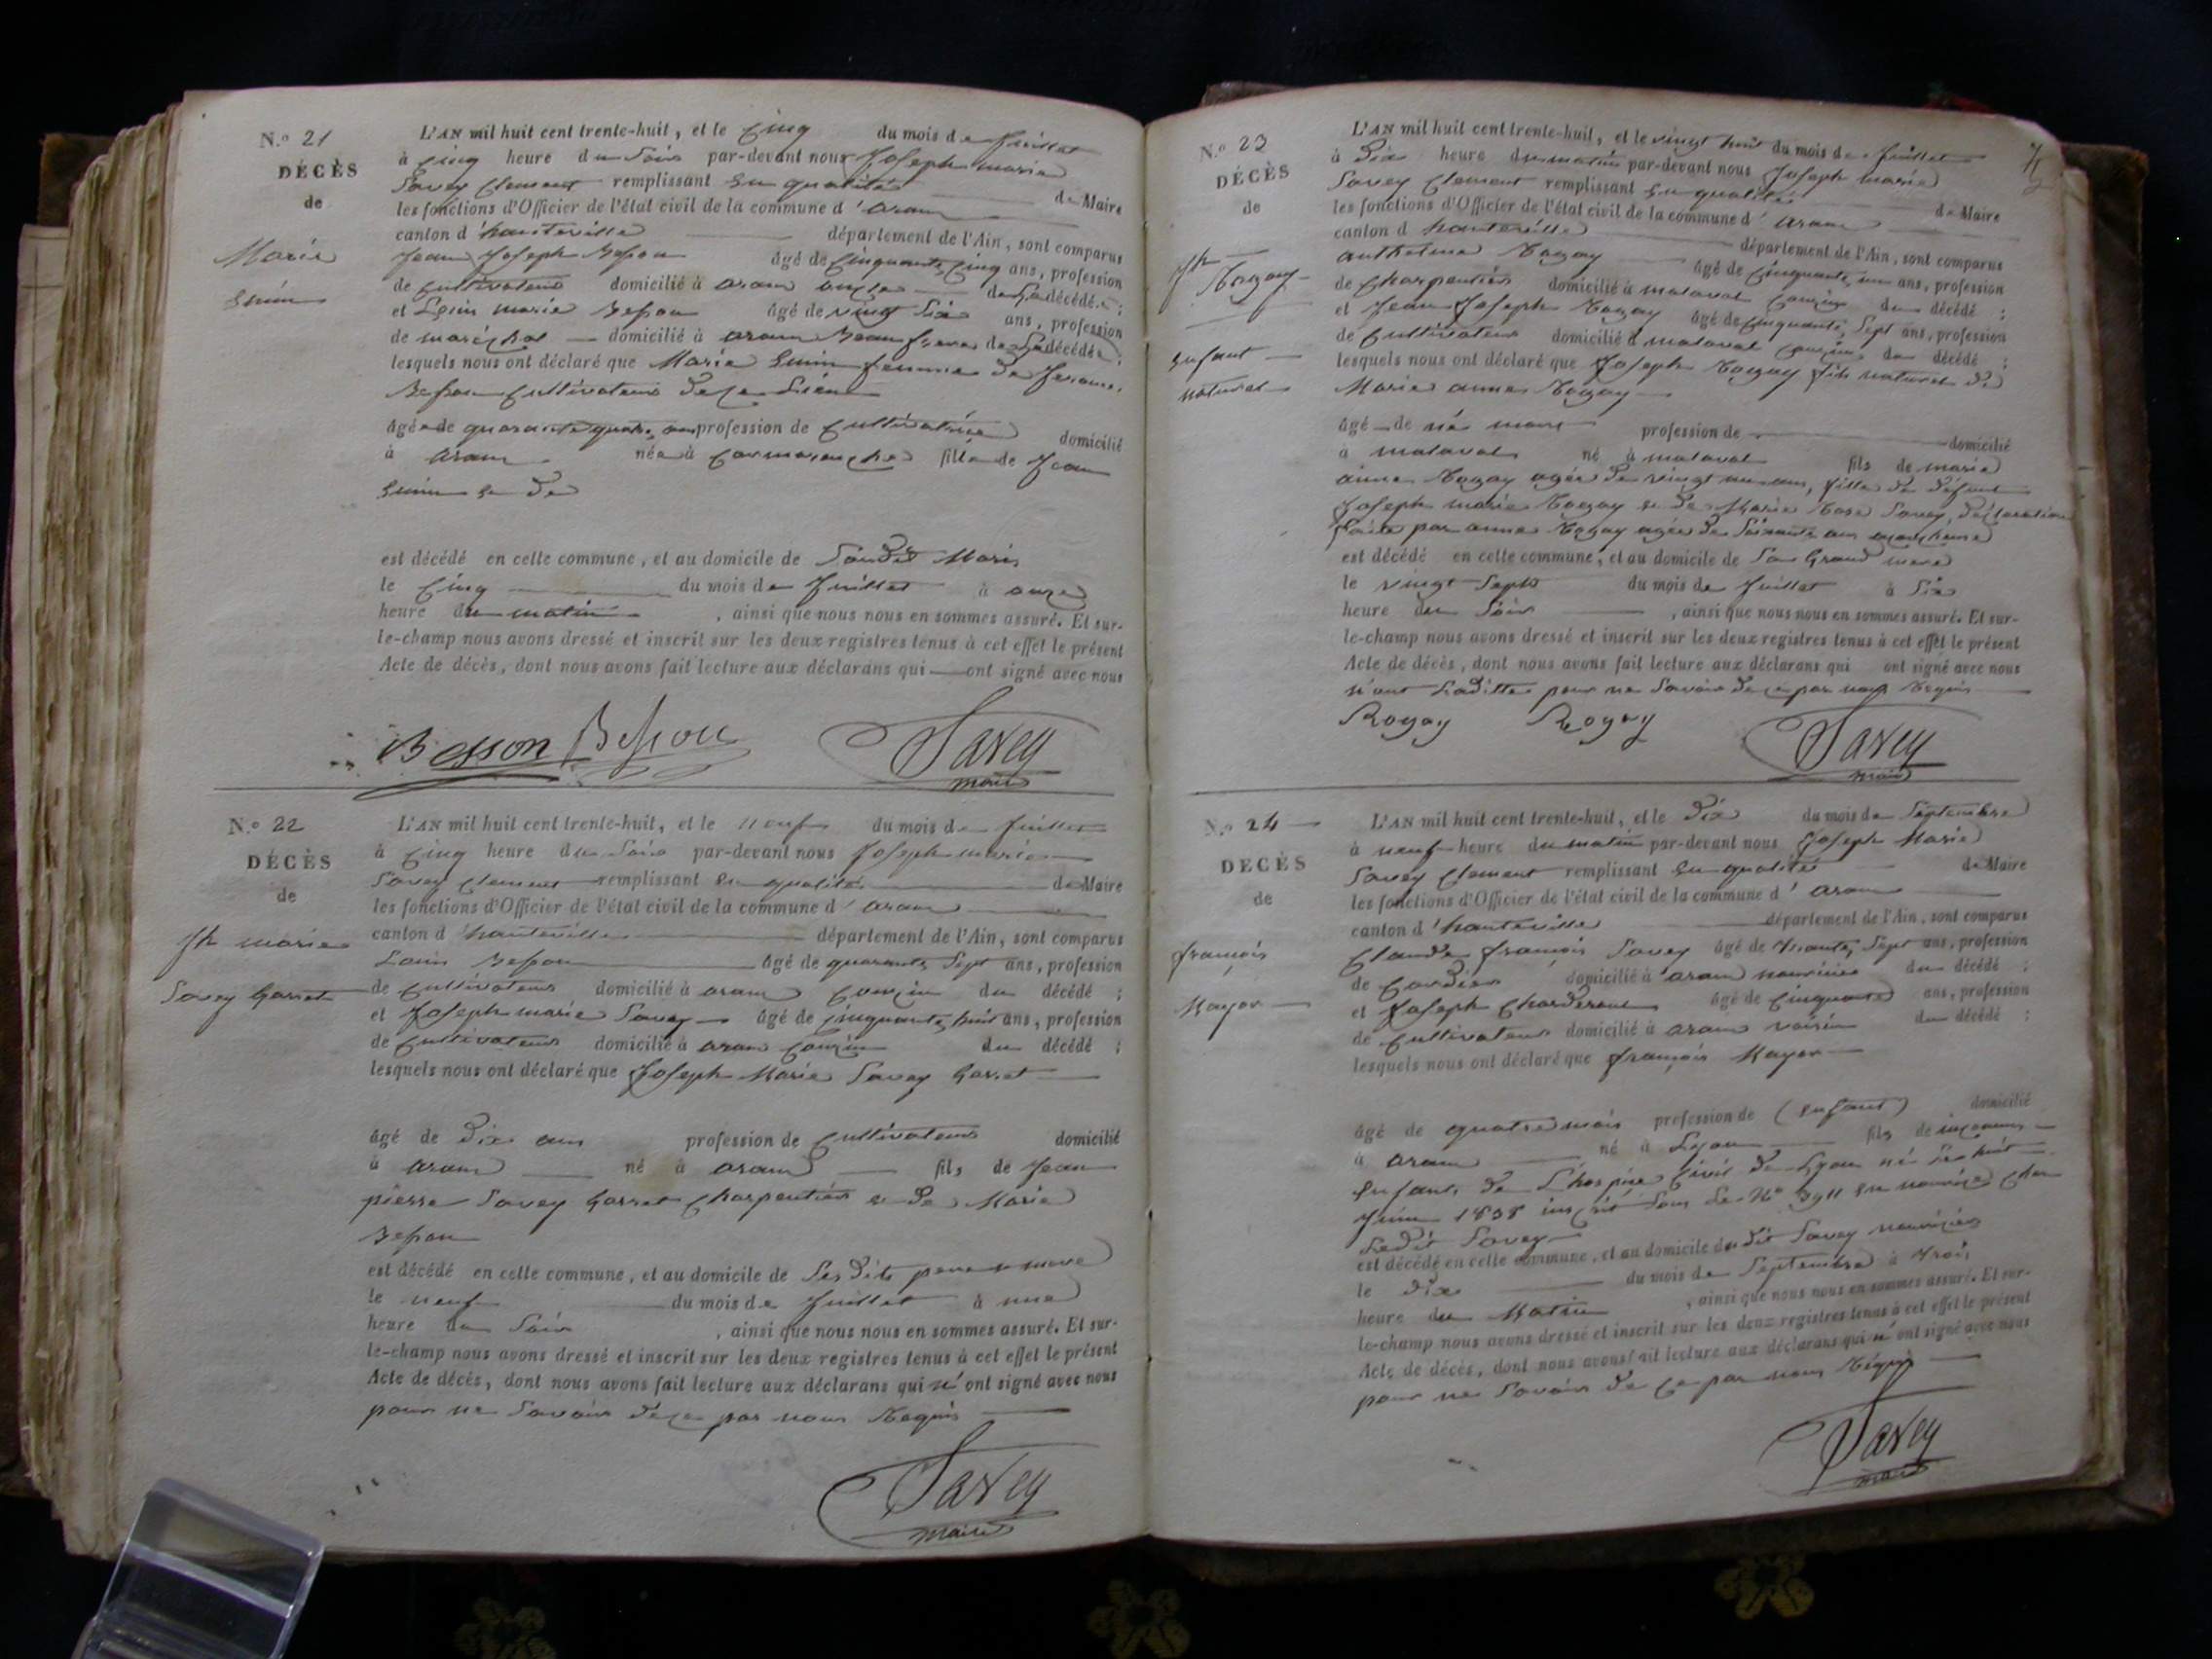 N.º 21
DÉCÈS
de
Marie
L'AN mil huit cent trente-huit, et le cinq du mois de Juillet
à cinq heure du soir par-devant nous Joseph marie
Savey Clement remplissant en qualité de Maire
les fonctions d'Officier de l'état civil de la commune d'aran
canton d'hauteville département de l'Ain, sont comparus
Jean Joseph Besson âgé de cinquante cinq ans, profession
de cultivateur domicilié à aran oncle de la décédée;
et Louis marie Besson âgé de vingt six ans, profession
de maréchal domicilié à aran Beau frere de la décédée;
lesquels nous ont déclaré que Marie femme de Jerome
Besson cultivateur de ce lieu
âgée de quarante quatre ans profession de cultivatrice domicilié
à aran née à cormaranche fille de Jean
et de
est décédé en cette commune, et au domicile de Sondit Mari
le cinq du mois de Juillet à onze
heure du matin, ainsi que nous nous en sommes assuré. Et sur-
le-champ nous avons dressé et inscrit sur les deux registres tenus à cet effet le présent
Acte de décès, dont nous avons fait lecture aux déclarans qui ont signé avec nous
Besson Besson Savey
maire
N.º 22
DÉCÈS
de
Jh marie
Savey Garret
L'AN mil huit cent trente-huit, et le neuf du mois de Juillet
à cinq heure du soir par-devant nous Joseph marie
Savey Clement remplissant en qualité de Maire
les fonctions d'Officier de l'état civil de la commune d'aran
canton d'hauteville département de l'Ain, sont comparus
Louis Besson âgé de quarante sept ans, profession
de cultivateur domicilié à aran cousin du décédé;
et Joseph marie Savey âgé de cinquante huit ans, profession
de cultivateur domicilié à aran cousin du décédé;
lesquels nous ont déclaré que Joseph Marie Savey Garret
âgé de dix ans profession de cultivateur domicilié
à aran né à aran fils de Jean
pierre Savey Garret charpentier et de Marie
Besson
est décédé en cette commune, et au domicile de Ses dits pere et mere
le neuf du mois de Juillet à une
heure du soir, ainsi que nous nous en sommes assuré. Et sur-
le-champ nous avons dressé et inscrit sur les deux registres tenus à cet effet le présent
Acte de décès, dont nous avons fait lecture aux déclarans qui n'ont signé avec nous
pour ne savoir de ce par nous Requis
Savey
maire
N.º 23
DÉCÈS
de
Jh
Rogay
enfant
naturel
L'AN mil huit cent trente-huit, et le vingt huit du mois de Juillet
à dix heure du matin par-devant nous Joseph marie
Savey Clement remplissant en qualité de Maire
les fonctions d'Officier de l'état civil de la commune d'aran
canton d'hauteville département de l'Ain, sont comparus
anthelme Rogay âgé de cinquante un ans, profession
de charpentier domicilié à malaval cousin du décédé;
et Jean Joseph Rogay âgé de cinquante sept ans, profession
de cultivateur domicilié à malaval cousin du décédé;
lesquels nous ont déclaré que Joseph Rogay fils naturel de
Marie anne Rogay
âgé de né mort profession de domicilié
à malaval né à malaval fils de marie
anne Rogay agée de vingt un ans, fille de défunt
Joseph marie Rogay et de Marie Rose Savey, declaration
faite par anne Rogay agée de soixante ans
est décédé en cette commune, et au domicile de Sa Grand mere
le vingt sept du mois de Juillet à six
heure du soir, ainsi que nous nous en sommes assuré. Et sur-
le-champ nous avons dressé et inscrit sur les deux registres tenus à cet effet le présent
Acte de décès, dont nous avons fait lecture aux déclarans qui ont signé avec nous
pour ne savoir de ce par nous Requis
Rogay Rogay Savey
maire
N.º 24
DÉCÈS
de
françois
Mayor
L'AN mil huit cent trente-huit, et le dix du mois de Septembre
à neuf heure du matin par-devant nous Joseph Marie
Savey Clement remplissant en qualité de Maire
les fonctions d'Officier de l'état civil de la commune d'aran
canton d'hauteville département de l'Ain, sont comparus
Claude françois Savey âgé de trente sept ans, profession
de cordier domicilié à aran nourricier du décédé;
et Joseph Charderon âgé de cinquante ans, profession
de cultivateur domicilié à aran voisin du décédé;
lesquels nous ont déclaré que françois Mayor
âgé de quatre mois profession de (enfant) domicilié
à aran né à Lyon fils de inconnus
enfant de L'hospice civil de Lyon né le huit
Juin 1838 inscrit sous le Nº 3911 en nourrice chez
Ledit Savey
est décédé en cette commune, et au domicile du dit Savey nourricier
le dix du mois de Septembre à trois
heure du Matin, ainsi que nous nous en sommes assuré. Et sur-
le-champ nous avons dressé et inscrit sur les deux registres tenus à cet effet le présent
Acte de décès, dont nous avons fait lecture aux déclarans qui n'ont signé avec nous
pour ne savoir de ce par nous Requis
Savey
maire